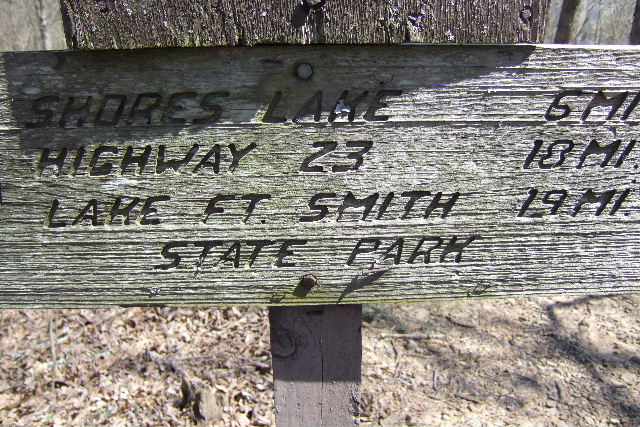 SHORES LAKE 6 MI
HIGHWAY 23 18 MI.
LAKE FT. SMITH 19 MI.
STATE PARK